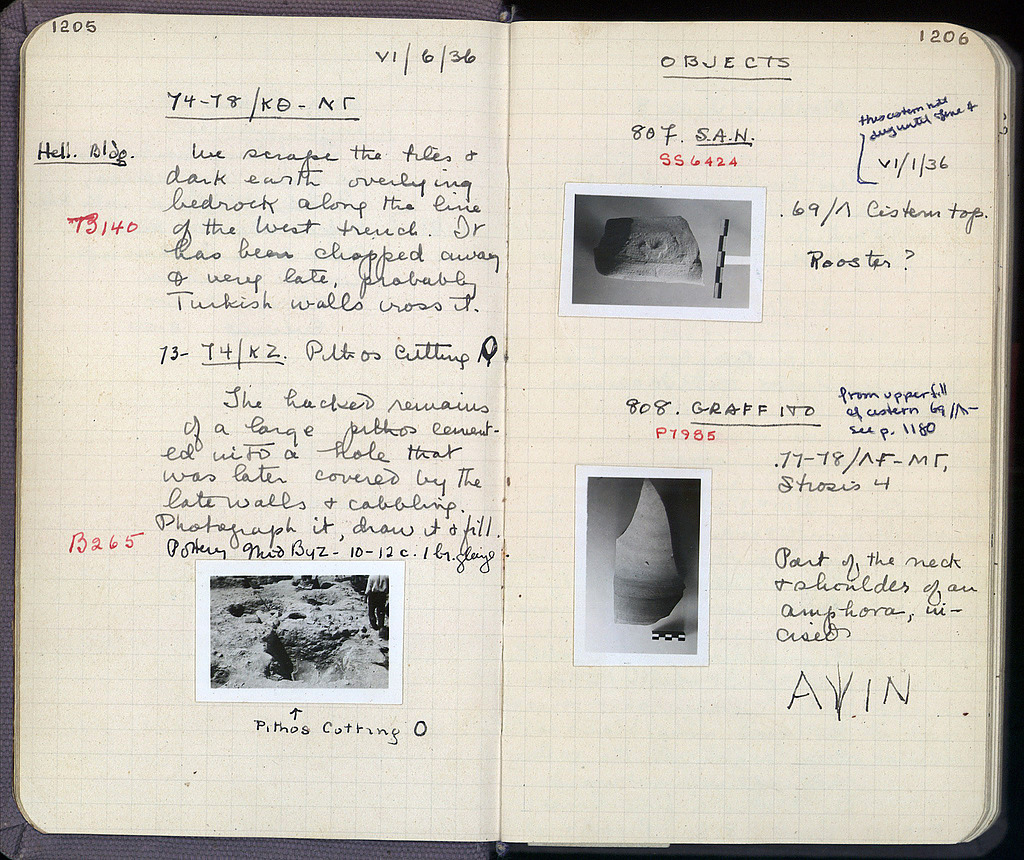 1205
VI/6/36
74-78/ΚΘ-ΝΓ
Hell. Bldg.
We scrape the tiles &
dark earth overlying
bedrock along the line
B140
of the West trench. It
has been chopped away
& very late, probably
Turkish walls cross it.
73-74/ΚΖ. Pithos Cutting O
The hacked remains
of a large pithos cement-
ed into a hole that
was later covered by the
late walls & cobbling.
Photograph it, draw it & fill.
B265
Pottery Mid Byz - 10-12 c. 1 br. glaze
↑
Pithos Cutting O
1206
OBJECTS
this cistern not
dug until June 4
807. S.A.N.
SS6424
VI/1/36
.69/Λ Cistern top.
Rooster?
808. GRAFFITO
P7985
from upper fill
of cistern 69/Λ-
see p. 1180
.77-78/ΛΓ-ΜΓ,
Strosis 4
Part of the neck
& shoulder of an
amphora, in-
cised
AVIN